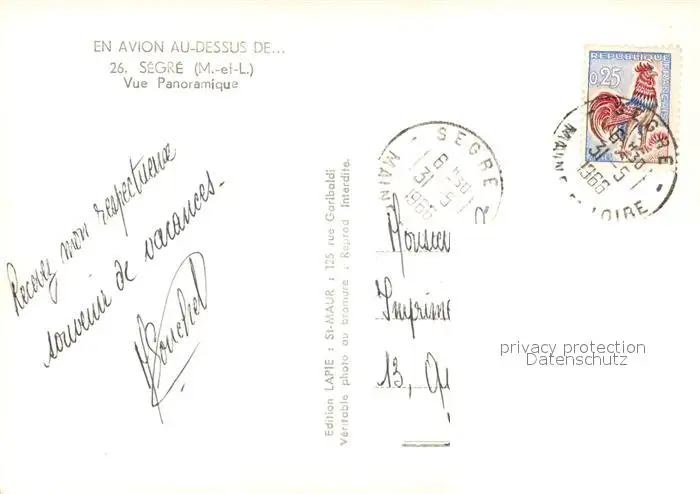 EN AVION AU-DESSUS DE...
26. SEGRÉ (M.-et-L.)
Vue Panoramique
Recevez mon respectueux
souvenir de vacances.
Edition LAPIE : St-MAUR : 125 rue Garibaldi
Véritable photo au bromure : Reprod Interdite.
SEGRÉ
31 -5
1966
MAIN
REPUBLIQUE FRANÇAISE
0,25
SEGRÉ
31 -5
1966
MAINE LOIRE
Monsieu
Imprime
13,
privacy protection
Datenschutz